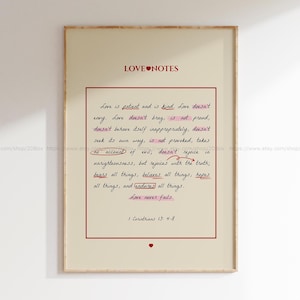 LOVE♥NOTES
Love is patient and is kind. Love doesn't
envy. Love doesn't brag, is not proud,
doesn't behave itself inappropriately, doesn't
seek its own way, is not provoked, takes
no account of evil; doesn't rejoice in
unrighteousness, but rejoices with the truth;
bears all things, believes all things, hopes
all things, and endures all things.
Love never fails.
1 Corinthians 13: 4-8